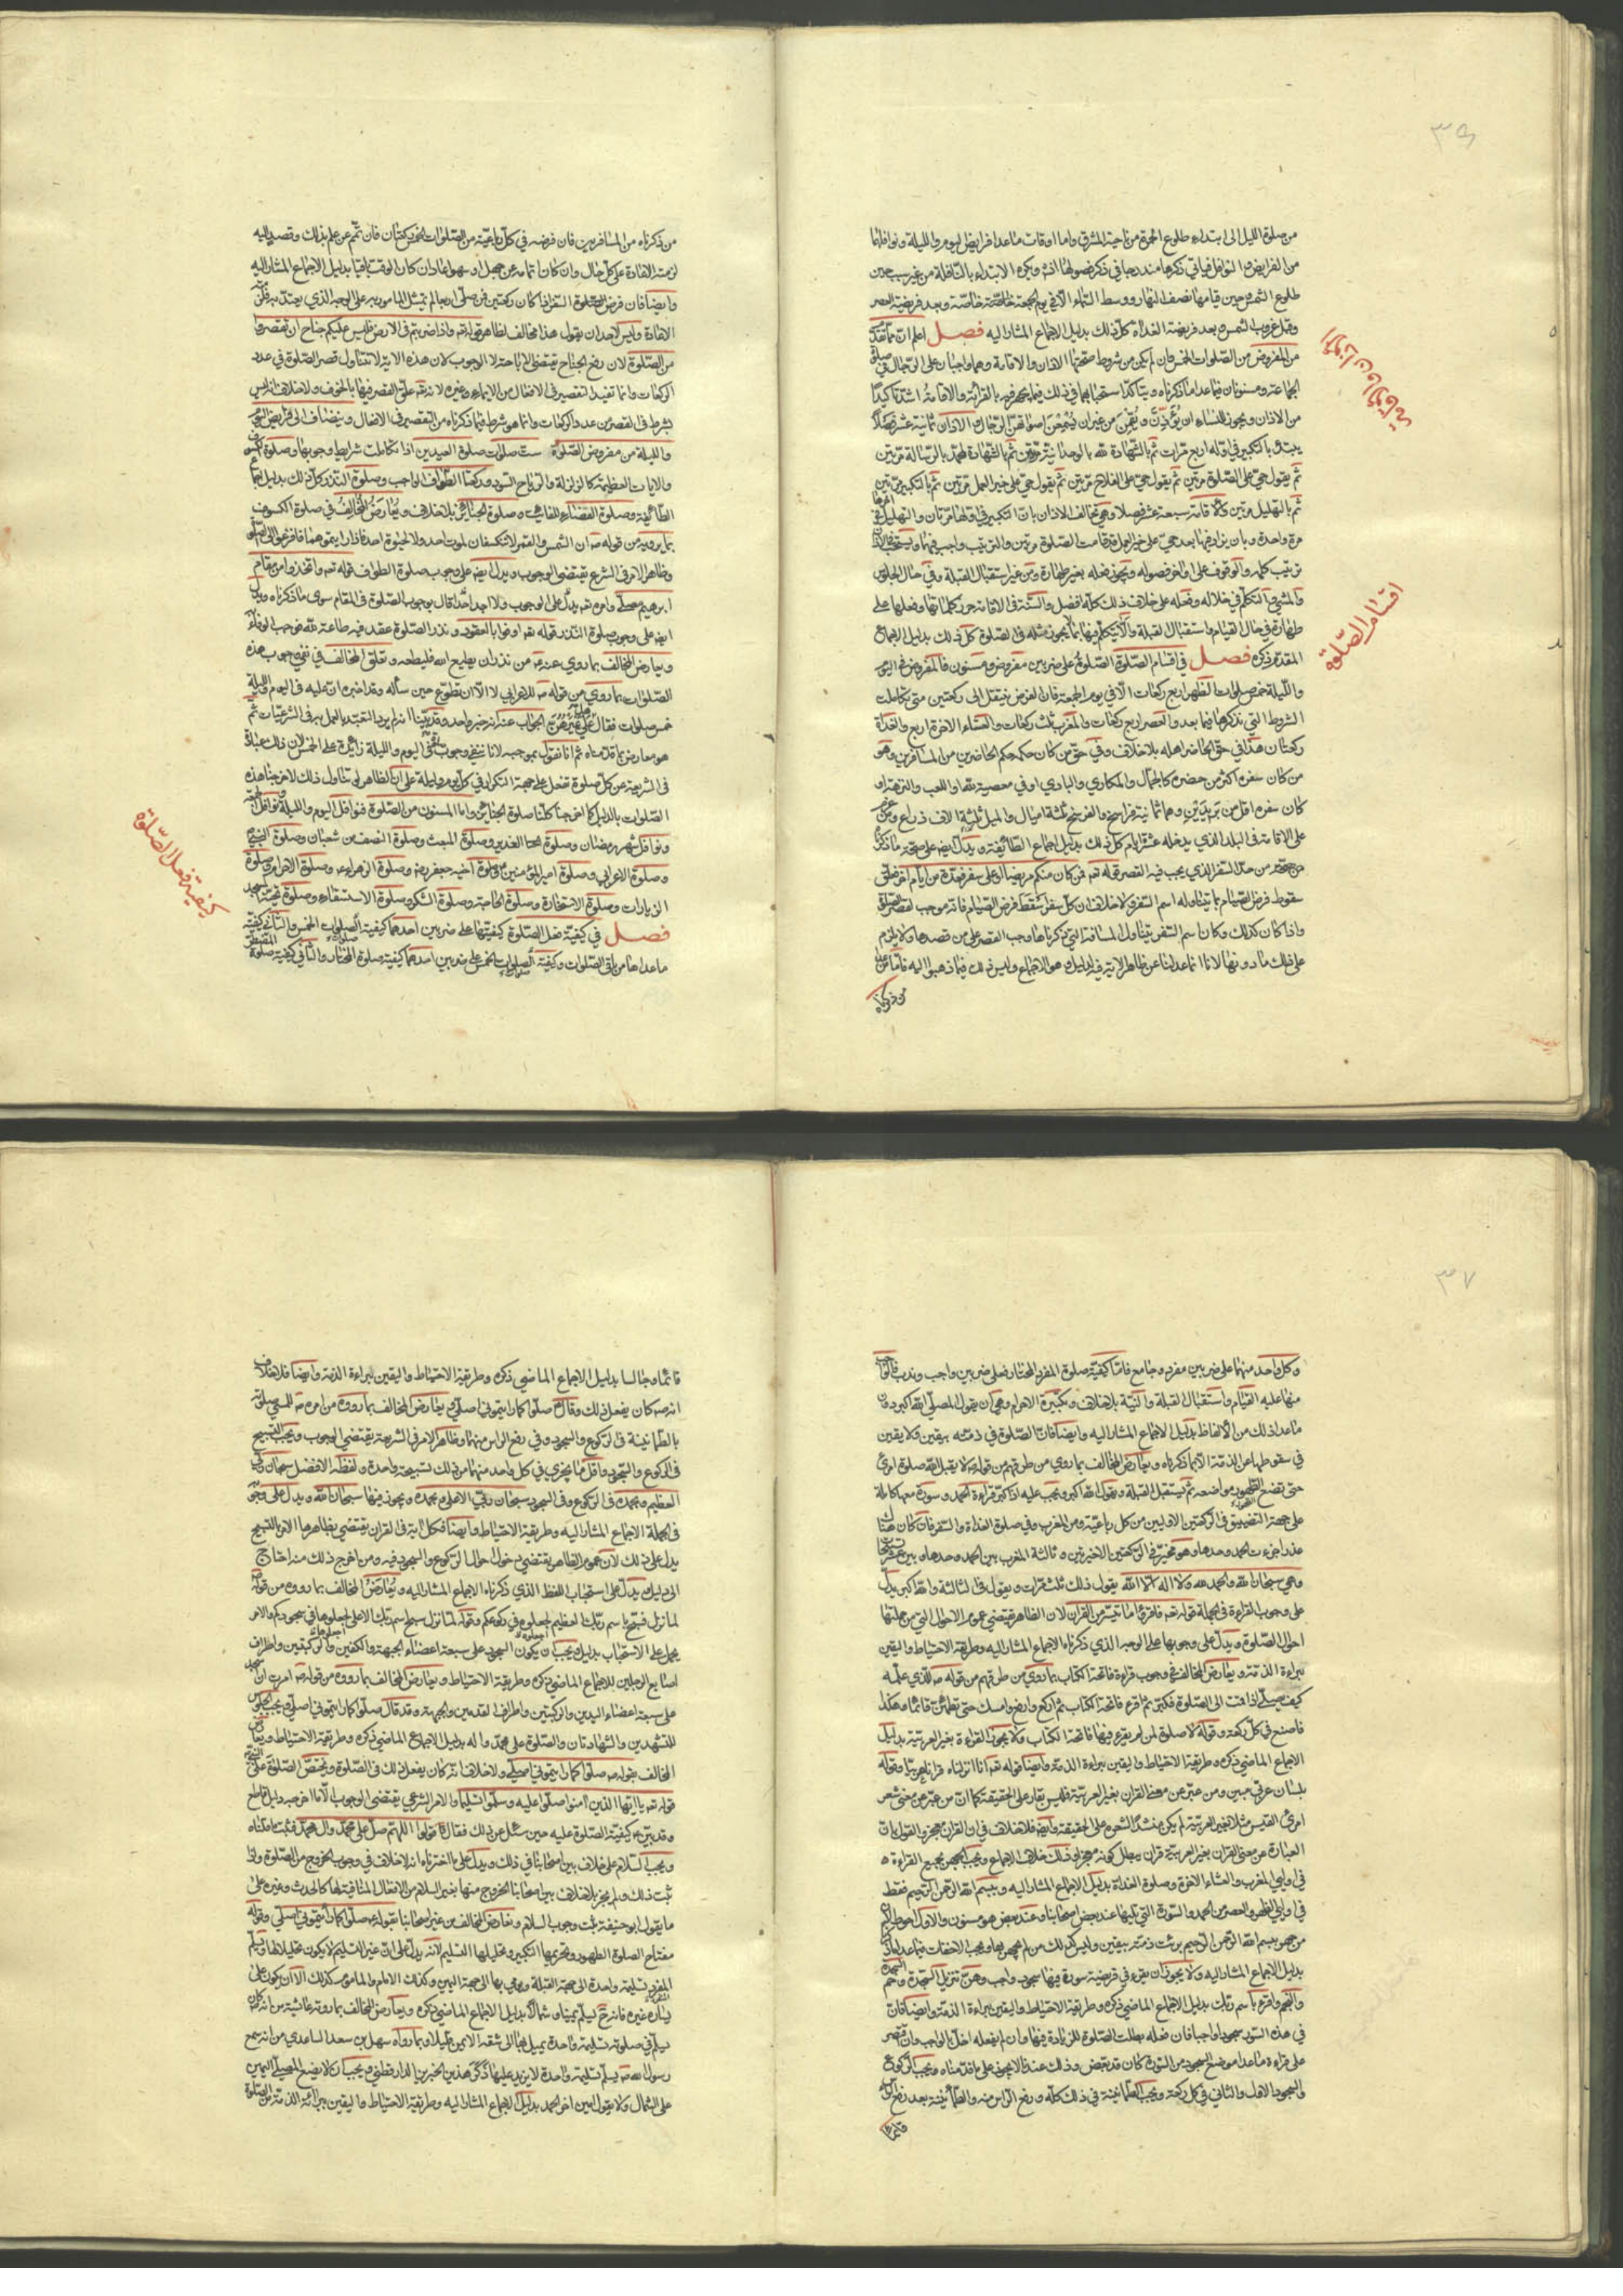 ٣٦
من صلوة الليل الى ابتداء طلوع الحمرة من ناحية المشرق واما اوقات ما عدا فرايض اليوم والليلة ونوافلهما
من الفرايض والنوافل فياتي ذكرها مندرجا في ذكر فصولها انشـ ويكره الابتداء بالنافلة من غير سبب حين
طلوع الشمس وحين قيامها نصف النهار ووسط السماء الا في يوم الجمعة خاصّة وبعد فريضة العصر
وقبل غروب الشمس وبعد فريضة الغداة كل ذلك بدليل الاجماع المشار اليه فصـل اعلم ان ما تقدّ
من المفروض من الصّلوات الخمس وان لم يكن من شروط صحتها الاذان والاقامة وهما واجبان على الرّجال في صلوة
الجماعة ومسنونان فيما عدا ما ذكرناه ويتاكد استحبابهما في ذلك فيما يجهر فيه بالقراءة والاقامة اشدّ تاكيدًا
من الاذان ويجوز للنساء ان يُؤَذِّنَّ ويُقِمْنَ من غير ان يُسْمِعْنَ اصواتهنّ الرّجال والاذان ثمانية عشر فصلًا
يبتدئ بالتكبير في اوّله اربع مرات ثم بالشهادة لله بالوحدانية مرّتين ثم بالشهادة لمحمّد بالرسالة مرّتين
ثم يقول حيّ على الصّلوة مرّتين ثم يقول حيّ على الفلاح مرّتين ثم يقول حيّ على خير العمل مرّتين ثم بالتكبير مرّتين
ثم بالتهليل مرّتين والاقامة سبعة عشر فصلا وهي تخالف الاذان بان التكبير في اوّلها مرّتان والتهليل في اخرها
مرة واحدة وبان يزاد فيها بعد حيّ على خير العمل قد قامت الصّلوة مرتين والترتيب واجب فيهما ويستحب في الاذان
ترتيب كلمه والوقوف على اواخر فصوله ويجوز فعله بغير طهارة ومن غير استقبال القبلة وفي حال الجلوس
والمشي والتكلّم في خلاله وفعله على خلاف ذلك كلّه افضل والسنّة في الاقامة حدر كلماتها وفعلها على
طهارة وفي حال القيام واستقبال القبلة والا يتكلّم فيها بما لا يجوز مثله في الصّلوة كل ذلك بدليل الاجماع
المقدم ذكره فصـل في اقسام الصّلوة الصّلوة على ضربين مفروض ومسنون فالمفروض في اليوم
والليلة خمس صلوات الظهر اربع ركعات الّا في يوم الجمعة فان الفرض ينتقل الى ركعتين متى تكاملت
الشروط التي نذكرها فيما بعد والعصر اربع ركعات والمغرب ثلث ركعات والعشاء الاخرة اربع والغداة
ركعتان هذا في حق الحاضر اهله بلا خلاف وفي حقّ من كان حكمه حكم الحاضرين من المسافرين وهو
من كان سفره اكثر من حضره كالجمّال والمكاري والبادي او في معصية لله او للعب والنزهة او
كان سفره اقل من بريدين وهما ثمانية فراسخ والفرسخ ثلثة اميال والميل ثلثة الاف ذراع ومن عزم
على الاقامة في البلد الذي يدخله عشرة ايام كل ذلك بدليل اجماع الطّائفة ويدلّ ايضا على صحّة ما ذكرنا
من حدّ السّفر الذي يجب فيه القصر قوله تعـ فمن كان منكم مريضا او على سفر فعدّة من ايام اخر فعلق
سقوط فرض الصّيام بما يتناوله اسم السّفر ولا خلاف ان كل سفر يُسْقِط فرض الصّيام فانه موجب لقصر الصّلوة
واذا كان كذلك وكان اسم السفر يتناول المسافة التي ذكرناها وجب القصر على من قصدها ولا يلزم
على ذلك ما دونها لانا انما عدلنا عن ظاهر الاية فيه لدليل وهو الاجماع وليس ذلك فيما ذهبوا اليه فامّا من عدا
من ذكرناه
اقسام الصّلوة
من ذكرناه من المسافرين فان فرضه في كلّ رباعيّة من الصّلوات الخمس ركعتان فان تمّم عن علم بذلك وقصد اليه
لزمته الاعادة على كلّ حال وان كان اتمامه عن جهل او سهو اعاد ان كان الوقت باقيا بدليل الاجماع المشار اليه
وايضا فان فرض الصّلوة السّفر اذا كان ركعتين فمن صلّى اربعا لم يمتثل المامور به على الوجه الذي يعتدّ به فلزمته
الاعادة وليس لاحد ان يقول هذا مخالف لظاهر قوله تعـ واذا ضربتم في الارض فليس عليكم جناح ان تقصروا
من الصّلوة لان رفع الجناح يقتضي الاباحة لا الوجوب لان هذه الاية لا تتناول قصر الصّلوة في عدد
الركعات وانما تفيد التقصير في الافعال من الايماء وغيره لانه تعـ علّق القصر فيها بالخوف ولا خلاف انه ليس
بشرط في القصر من عدد الركعات وانما هو شرط فيما ذكرناه من التقصير في الافعال وينضاف الى فرايض اليوم
والليلة من مفروض الصّلوة ستّ صلوات صلوة العيدين اذا تكاملت شرايط وجوبها وصلوة الكسوف
والايات العظيمة كالزلزلة والرياح السّود وركعتا الطّواف الواجب وصلوة النذر كل ذلك بدليل اجماع
الطّائفة وصلوة القضاء للفائت وصلوة الجنائز بلا خلاف ويُعَارَضُ المُخَالِفُ في صلوة الكسوف
بما يرويه من قوله صـ ان الشمس والقمر لا تنكسفان لموت احد ولا لحيوة احد فاذا رايتموهما فافزعوا الى الصّلوة
وظاهر الامر في الشرع يقتضي الوجوب ويدل ايضا على وجوب صلوة الطواف قوله تعـ واتخذوا من مقام
ابرهيم مصلّى وامره تعـ يدلّ على الوجوب ولا احد قال بوجوب الصّلوة في المقام سوى ما ذكرناه ويدل
ايضا على وجوب صلوة النّذر قوله تعـ اوفوا بالعقود ونذر الصّلوة عقد فيه طاعة لله فوجب الوفاء به
ويعارض المخالف بما روي عنه صـ من نذر ان يطيع الله فليطعه وتعلّق المخالف في نفي وجوب هذه
الصّلوات بما روي من قوله صـ للاعرابي لا الّا ان تطوّع حين سأله وقد اخبره ان عليه في اليوم والليلة
خمس صلوات فقال هل عَلَيَّ غَيْرُهُنَّ الجواب عنه انه خبر واحد وقد بيّنا انه لم يرد التعبّد بالعمل به في الشرعيّات ثم
هو معارض بما قدّمناه ثم انا نقول بموجبه لانا ننفي وجوب صلوة في اليوم والليلة زائدة على الخمس لان ذلك عبارة
في الشريعة عن كل صلوة تفعل على جهة التكرار في كلّ يوم وليلة على ان الظاهر لو تناول ذلك لاخرجنا هذه
الصّلوات بالدليل كما اخرجنا كلّنا صلوة الجنائز واما المسنون من الصّلوة فنوافل اليوم والليلة ونوافل الجمعة
ونوافل شهر رمضان وصلوة الغدير وصلوة المبعث وصلوة النصف من شعبان وصلوة
وصلوة الاعرابي وصلوة امير المؤمنين ع وصلوة اخيه جعفر رض وصلوة الزهراء ع وصلوة الاحرام وصلوة
الزيارات وصلوة الاستخارة وصلوة الحاجة وصلوة الشكر وصلوة الاستسقاء وصلوة تحيّة المسجد
فصـل في كيفيّة فعل الصّلوة كيفيّتها على ضربين احدهما كيفية الصلوات الخمس والثاني كيفيّة
ما عداها من باقي الصّلوات وكيفية الصلوات الخمس على ضربين احدهما كيفية صلوة المختار والثاني كيفية صلوة المضطر
كيفيّة فعل الصّلوة
٣٧
وكل واحد منهما على ضربين مفرد وجامع فامّا كيفيّة صلوة المفرد المختار فعلى ضربين واجب وندب فالواجب
منها عليه القيام واستقبال القبلة والنيّة بلا خلاف وتكبيرة الاحرام وهي ان يقول المصلّي الله اكبر دون
ما عدا ذلك من الالفاظ بدليل الاجماع المشار اليه وايضا فان الصّلوة في ذمّته بيقين ولا يقين
في سقوطها عن الذمّة الّا بما ذكرناه ويعارض المخالف بما روي من طرقهم من قوله صـ لا يقبل الله صلوة امرئ
حتى يضع الطهور مواضعه ثم يستقبل القبلة ويقول الله اكبر ويجب عليه اذا كبّر قراءة الحمد وسورة معها كاملة
على جهة التضييق في الركعتين الاوليين من كل رباعيّة ومن المغرب وفي صلوة الغداة والسّفر فان كان هناك
عذر اجزءت الحمد وحدها وهو مخيّر في الركعتين الاخيرتين وثالثة المغرب بين الحمد وحدها وبين عشر تسبيحات
وهي سبحان الله والحمد لله ولا اله الا الله يقول ذلك ثلث مرّات ويقول في الثالثة والله اكبر يدلّ
على وجوب القراءة في الجملة قوله تعـ فاقرؤا ما تيسّر من القران لان الظاهر يقتضي عموم الاحوال التي من جملتها
احوال الصّلوة ويدلّ على وجوبها على الوجه الذي ذكرناه الاجماع المشار اليه وطريقة الاحتياط واليقين
لبراءة الذمّة ويعارض المخالف في وجوب قراءة فاتحة الكتاب بما روي من طرقهم من قوله صـ للذي علّمه
كيف يصلّي اذا قمت الى الصّلوة فكبّر ثم اقرء فاتحة الكتاب ثم اركع وارفع راسك حتى تطمئنّ قائما وهكذا
فاصنع في كلّ ركعة وقوله لا صلوة لمن لم يقرء فيها فاتحة الكتاب ولا يجوز القراءة بغير العربيّة بدليل
الاجماع الماضي ذكره وطريقة الاحتياط واليقين ببراءة الذمّة وايضا قوله تعـ انا انزلناه قرانا عربيّا وقوله
بلسان عربيّ مبين ومن عبّر عن معنى القران بغير العربيّة فليس بقارء على الحقيقة كما ان من عبّر عن معنى شعر
امرئ القيس مثلا بغير العربيّة لم يكن منشدا لشعره على الحقيقة وايضا فلا خلاف في ان القران معجز والقول بان
العبارة عن معنى القران بغير العربيّة قران يبطل كونه معجزا وذلك خلاف الاجماع ويجب الجهر بجميع القراءة
في اوليي المغرب والعشاء الاخرة وصلوة الغداة بدليل الاجماع المشار اليه وببسم الله الرحمن الرّحيم فقط
في اوليي الظهر والعصر من الحمد والسّورة التي تليها عند بعض اصحابنا وعند بعض هو مسنون والاوّل احوط
من جهر ببسم الله الرحمن الرّحيم برئت ذمّته بيقين وليس كذلك من لم يجهر بها ويجب الاخفات فيما عدا ما ذكرنا
بدليل الاجماع المشار اليه ولا يجوز ان يقرء في فريضة سورة فيها سجود واجب وهن تنزيل السّجدة وحم السجدة
والنجم واقرء باسم ربّك بدليل الاجماع الماضي ذكره وطريقة الاحتياط واليقين لبراءة الذمّة وايضا فان
في هذه السّور سجودا واجبا فان فعله بطلت الصّلوة للزيادة فيها وان لم يفعله اخلّ بالواجب وان اقتصر
على قراءة ما عدا موضع السجود من السّورة كان قد بعّض وذلك عندنا لا يجوز على ما قدّمناه ويجب الركوع
والسجود الاول والثاني في كل ركعة ويجب الطّمأنينة في ذلك كلّه ورفع الرّاس منه والطّمأنينة بعد رفع الراس
قائما وجالسا بدليل الاجماع الماضي ذكره وطريقة الاحتياط واليقين لبراءة الذمّة وايضا فلا خلاف
انه صـ كان يفعل ذلك وقال صلّوا كما رايتموني اصلّي ويعارض المخالف بما رووه من امره صـ للمسيء صلوته
بالطّمأنينة في الرّكوع والسجود وفي رفع الراس منهما وظاهر الامر في الشريعة يقتضي الوجوب ويجب التسبيح
في الركوع والسّجود واقلّ ما يجزي في كل واحد منهما من ذلك تسبيحة واحدة ولفظه الافضل سبحان ربّي
العظيم وبحمده في الركوع وفي السجود سبحان ربّي الاعلى وبحمده ويجوز فيهما سبحان الله ويدلّ على وجوبه
في الجملة الاجماع المشار اليه وطريقة الاحتياط وايضا فكل اية في القران يقتضي بظاهرها الامر بالتسبيح
يدلّ على ذلك لان عموم الظاهر يقتضي دخول احوال الركوع والسجود فيه ومن اخرج ذلك منه احتاج
الى دليل ويدلّ على استحباب اللفظ الذي ذكرناه الاجماع المشار اليه ويُعَارَضُ المخالف بما رووه من قوله
لما نزل فسبّح باسم ربك العظيم اجعلوها في ركوعكم وقوله لما نزل سبح اسم ربك الاعلى اجعلوها في سجودكم والامر
يحمل على الاستحباب بدليل ويجب ان يكون السجود على سبعة اعضاء الجبهة والكفّين والرّكبتين واطراف
اصابع الرجلين للاجماع الماضي ذكره وطريقة الاحتياط ويعارض المخالف بما رووه من قوله صـ امرت ان اسجد
على سبعة اعضاء اليدين والركبتين واطراف القدمين والجبهة وقد قال صلّوا كما رايتموني اصلّي ويجب الجلوس
للتشهدين والشهادتان والصّلوة على محمّد واله بدليل الاجماع الماضي ذكره وطريقة الاحتياط ويعارض
المخالف بقوله صـ صلّوا كما رايتموني اصلّي ولا خلاف انه كان يفعل ذلك في الصّلوة ويختصّ الصّلوة على النبيّ
قوله تعـ يا ايّها الذين امنوا صلّوا عليه وسلّموا تسليما والامر الشرعي يقتضي الوجوب الّا ما اخرجه دليل قاطع
وقد بيّن ع كيفيّة الصّلوة عليه حين سئل عن ذلك فقال قولوا اللهم صلّ على محمّد وال محمّد فثبت ما قلناه
ويجب السّلام على خلاف بين اصحابنا في ذلك ويدل على ما اخترناه انه لا خلاف في وجوب الخروج من الصّلوة واذا
ثبت ذلك ولم يجز بلا خلاف بين اصحابنا الخروج منها بغير السلام من الافعال المنافية لها كالحدث وغيره على
ما يقول ابو حنيفة ثبت وجوب السلام ونعارض المخالف من غير اصحابنا بقوله صـ صلّوا كما رايتموني اصلّي وقوله
مفتاح الصلوة الطهور وتحريمها التكبير وتحليلها التسليم لانه يدلّ على ان غير التسليم لا يكون تحليلا لها ويسلّم
المفرد تسليمة واحدة الى جهة القبلة ويومي بها الى جهة اليمين وكذلك الامام والماموم كذلك الا ان يكون على
يساره غيره فانه ح يسلّم يمينا وشمالا بدليل الاجماع الماضي ذكره ويعارض المخالف بما روته عائشة من انه كان
يسلّم في صلوته تسليمة واحدة يميل بها الى شقه الايمن قليلا وبما رواه سهل بن سعد الساعدي من انه سمع
رسول الله صـ يسلّم تسليمة واحدة لا يزيد عليها ذَكَرَ هذين الخبرين الدارقطني ويجب ان لا يضع المصلّي اليمين
على الشمال ولا يقول امين اخر الحمد بدليل الاجماع المشار اليه وطريقة الاحتياط واليقين ببرائة الذمّة من الصّلوة